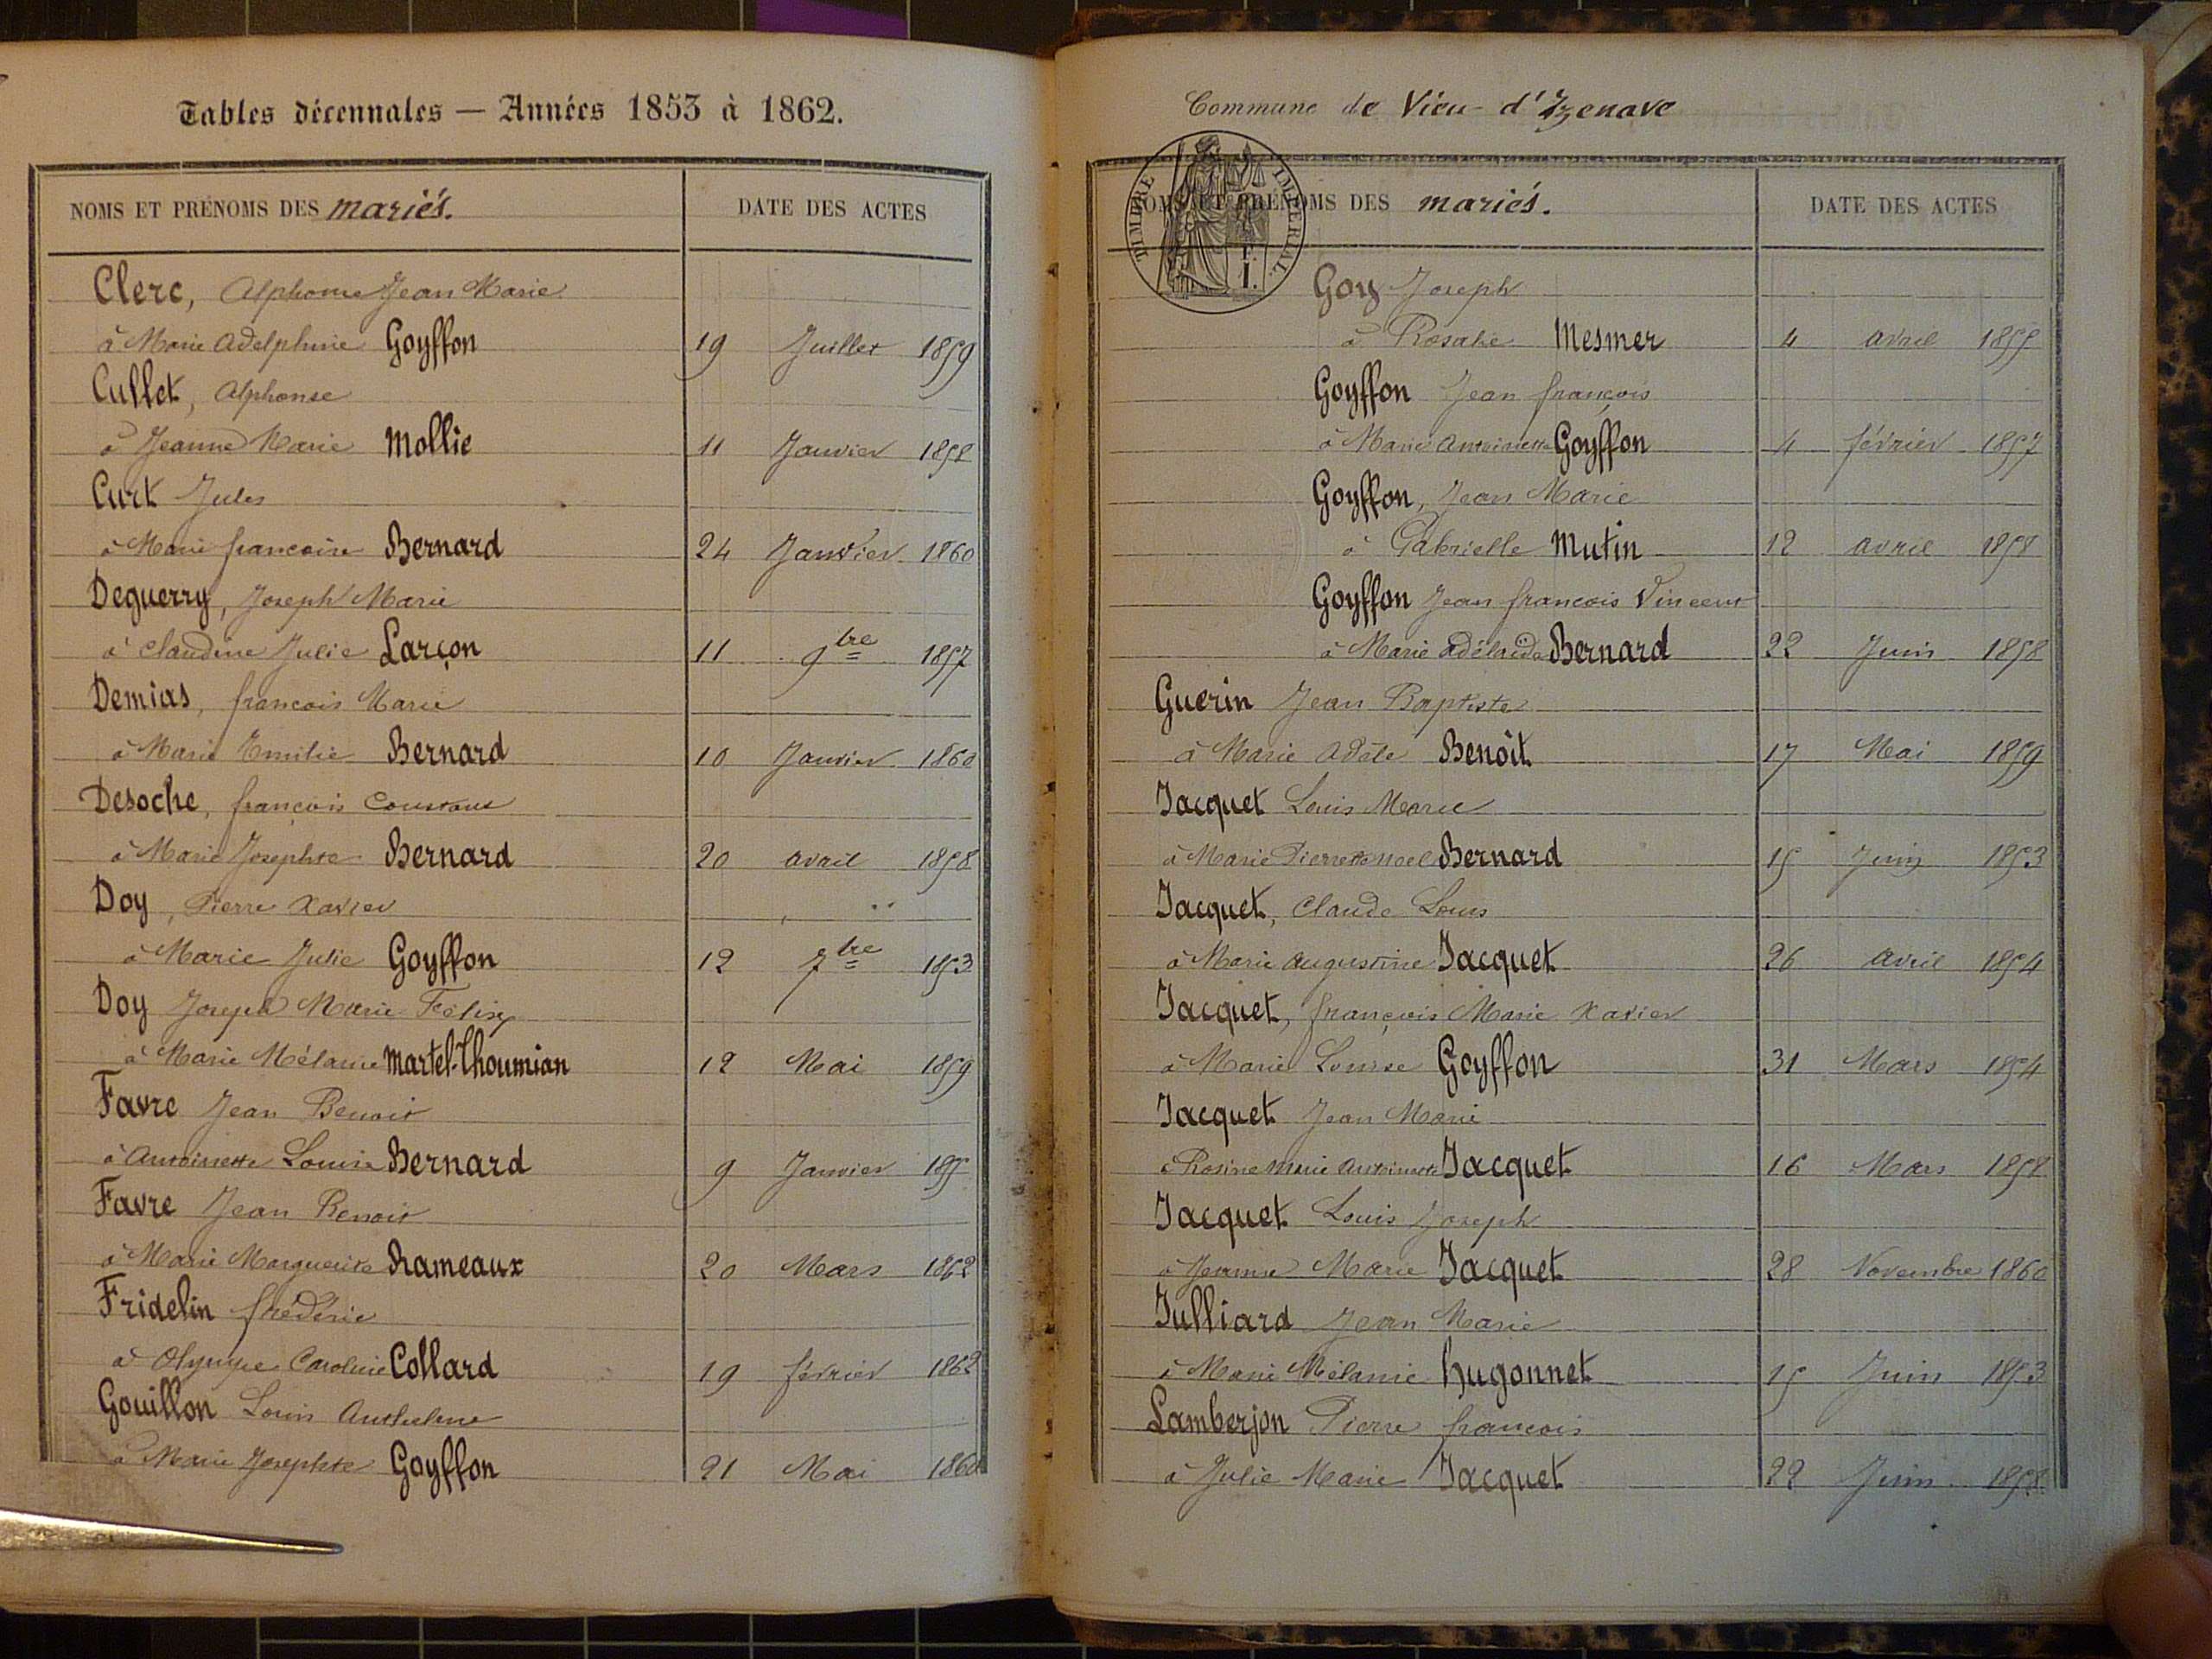 Tables décennales — Années 1853 à 1862.
NOMS ET PRÉNOMS DES mariés. DATE DES ACTES
Clerc, Alphonse Jean Marie
à Marie Adelphine Goyffon 19 Juillet 1859
Cullet, Alphonse
à Jeanne Marie Mollie 11 Janvier 1858
Curt Jules
à Marie françoise Bernard 24 Janvier 1860
Deguerry, Joseph Marie
à Claudine Julie Larçon 11 9bre 1857
Demias, françois Marie
à Marie Emilie Bernard 10 Janvier 1860
Desoche, françois Constant
à Marie Josephte Bernard 20 avril 1858
Doy, Pierre Xavier
à Marie Julie Goyffon 12 7bre 1853
Doy Joseph Marie Félix
à Marie Mélanie Martel-Thoumian 12 Mai 1859
Favre Jean Benoit
à Antoinette Louise Bernard 9 Janvier
Favre Jean Benoit
à Marie Marguerite Rameaux 20 Mars 1862
Fridelin frédéric
à Olympe Caroline Collard 19 février 1862
Gouillon Louis Anthelme
à Marie Josephte Goyffon 21 Mai 1860
Commune de Vieu-d'Izenave
TIMBRE IMPERIAL
1 F.
NOMS ET PRÉNOMS DES mariés. DATE DES ACTES
Goy Joseph
à Rosalie Mesmer 4 avril
Goyffon Jean françois
à Marie Antoinette Goyffon 4 février 1857
Goyffon, Jean Marie
à Gabrielle Mutin 12 avril 1858
Goyffon Jean francois Vincent
à Marie Adélaïde Bernard 22 Juin 1858
Guerin Jean Baptiste
à Marie Adèle Benoît 17 Mai 1859
Jacquet Louis Marie
à Marie Pierrette Noel Bernard 15 Juin 1853
Jacquet, Claude Louis
à Marie Augustine Jacquet 26 avril 1854
Jacquet, françois Marie Xavier
à Marie Louise Goyffon 31 Mars 1854
Jacquet Jean Marie
à Rosine Marie Antoinette Jacquet 16 Mars 1858
Jacquet Louis Joseph
à Jeanne Marie Jacquet 28 Novembre 1860
Julliard Jean Marie
à Marie Mélanie Hugonnet 15 Juin 1853
Lamberjon Pierre francois
à Julie Marie Jacquet 22 Juin 1858